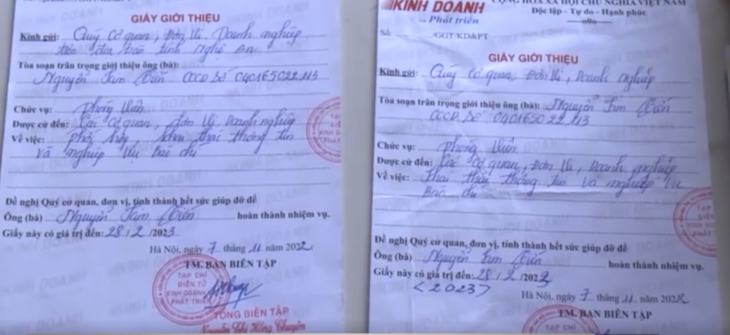 GIẤY GIỚI THIỆU
Kính gửi: Quý Cơ quan, Đơn vị, Doanh nghiệp
trên địa bàn tỉnh Nghệ An
Tòa soạn trân trọng giới thiệu ông (bà):
Nguyễn Tam CCCD Số 040165022113
Chức vụ: Phóng Viên
Được cử đến: Các Cơ quan, đơn vị, Doanh nghiệp
Về việc: phối hợp khai thác thông tin
và nghiệp vụ báo chí
Đề nghị Quý cơ quan, đơn vị, tỉnh thành hết sức giúp đỡ để
Ông (bà) Nguyễn Tam hoàn thành nhiệm vụ.
Giấy này có giá trị đến: 28/2/2023
Hà Nội, ngày 7 tháng 11 năm 2022
TM. BAN BIÊN TẬP
TẠP CHÍ
ĐIỆN TỬ
KINH DOANH
PHÁT TRIỂN
TỔNG BIÊN TẬP
KINH DOANH
Phát triển
CỘNG HÒA XÃ HỘI CHỦ NGHĨA VIỆT NAM
Độc lập - Tự do - Hạnh phúc
Số: /GGT/KD&PT
GIẤY GIỚI THIỆU
Kính gửi: Quý Cơ quan, Đơn vị, Doanh nghiệp
Tòa soạn trân trọng giới thiệu ông (bà): Nguyễn Tam
CCCD Số 040165022113
Chức vụ: Phóng Viên
Được cử đến: Các Cơ quan, Đơn vị, Doanh nghiệp
Về việc: Khai thác thông tin và nghiệp vụ
Báo chí
Đề nghị Quý cơ quan, đơn vị, tỉnh thành hết sức giúp đỡ để
Ông (bà) Nguyễn Tam hoàn thành nhiệm vụ.
Giấy này có giá trị đến: 28/2/2023
(2023)
Hà Nội, ngày 7 tháng 11 năm 2022
TM. BAN BIÊN TẬP